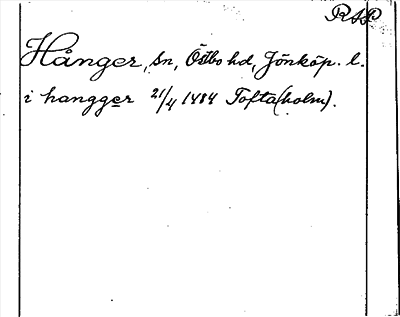 RAP
Hånger, sn, Östbo hd, Jönköp. l.
i hangger 21/4 1484 Tofta(holm).